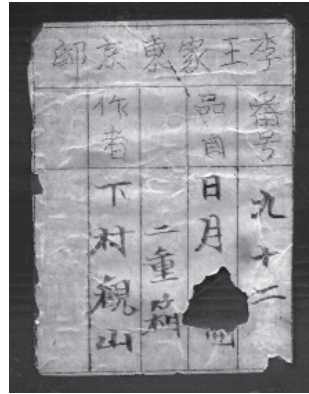 李王家東京邸
番号 九十二
品目 日月
二重箱
作者 下村観山